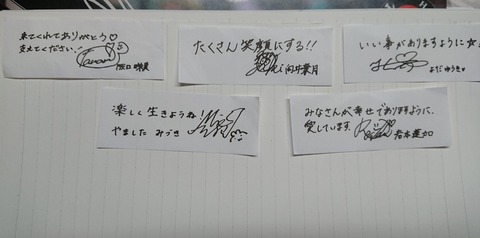 来てくれてありがとう♡
支えてください!
阪口 珠美
たくさん笑顔にする!!
向井葉月
いい事がありますように☆
よだ ゆうき
楽しく生きようね!
やました みづき
みなさんが幸せでありますように、
愛しています。
岩本蓮加